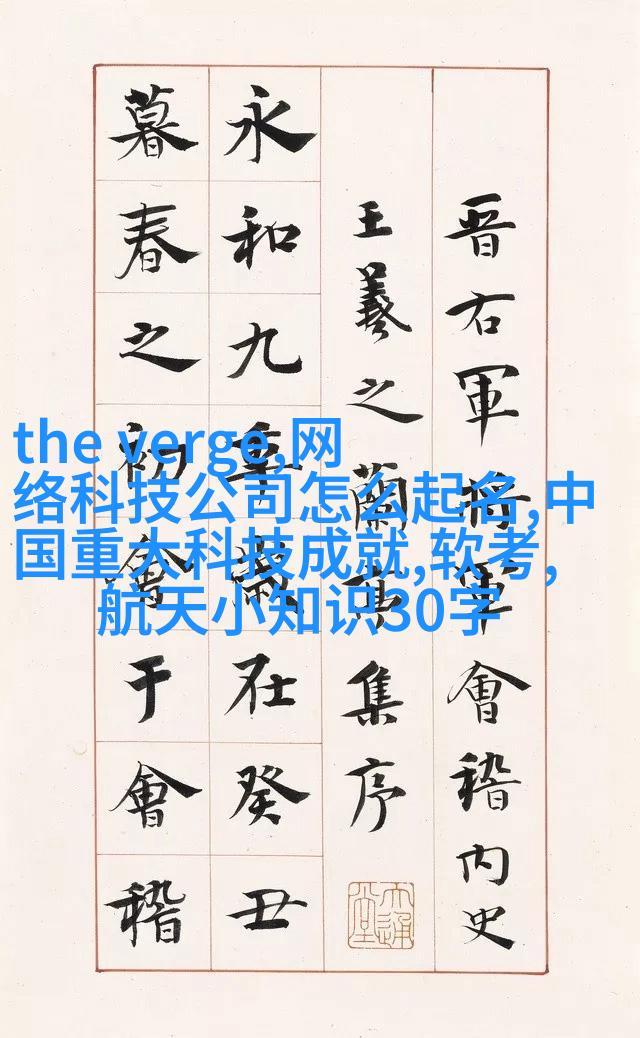 晋右軍将軍會稽内史
王羲之蘭亭集序
永和九年歲在癸丑
暮春之初會于會稽
the verge,网
络科技公司怎么起名,中
国重大科技成就,软考,
航天小知识30字